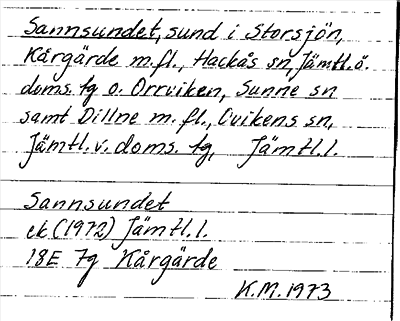 Sannsundet, sund i Storsjön,
Kårgärde m.fl., Hackås sn, Jämtl.ö.
doms. tg o. Orrviken, Sunne sn
samt Dillne m.fl., Ovikens sn,
Jämtl.v. doms. tg, Jämtl.l.
Sannsundet
ek (1972) Jämtl.l.
18E 7g Kårgärde
K.M. 1973